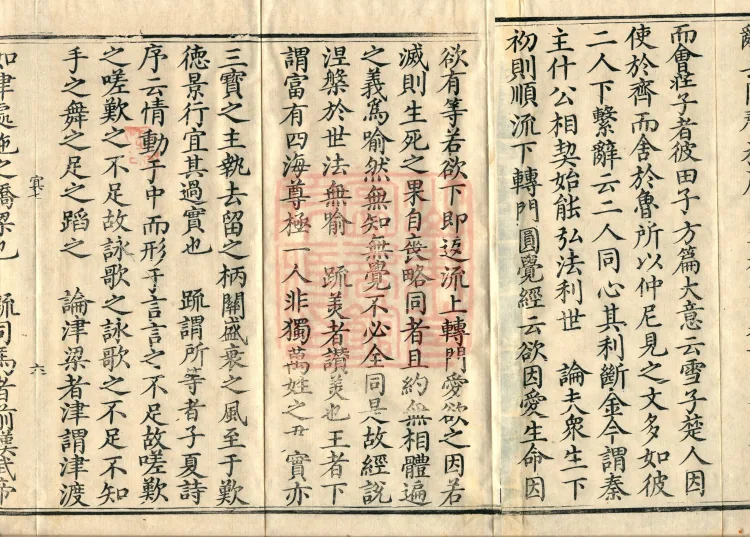 而會莊子者彼田子方篇大意云雪子楚人因
使於齊而舍於魯所以仲尼見之文多如彼
二人下繫辭云二人同心其利斷金今謂秦
主什公相契始能弘法利世　論夫衆生下
初則順流下轉門圓覺經云欲因愛生命因
欲有等若欲下即返流上轉門愛欲之因若
滅則生死之果自喪略同者且約無相體遍
之義爲喻然無知無覺不必全同是故經說
涅槃於世法無喻　䟽美者讚美也王者下
謂富有四海尊極一人非獨萬姓之　實亦
三寶之主執去留之柄關盛衰之風至于歎
徳景行宜其過實也　䟽謂所等者子夏詩
序云情動于中而形于言言之不足故嗟歎
之嗟歎之不足故詠歌之詠歌之不足不知
手之舞之足之蹈之　論津梁者津謂津渡
如津處施之橋梁也　䟽同爲者前漢武帝
六